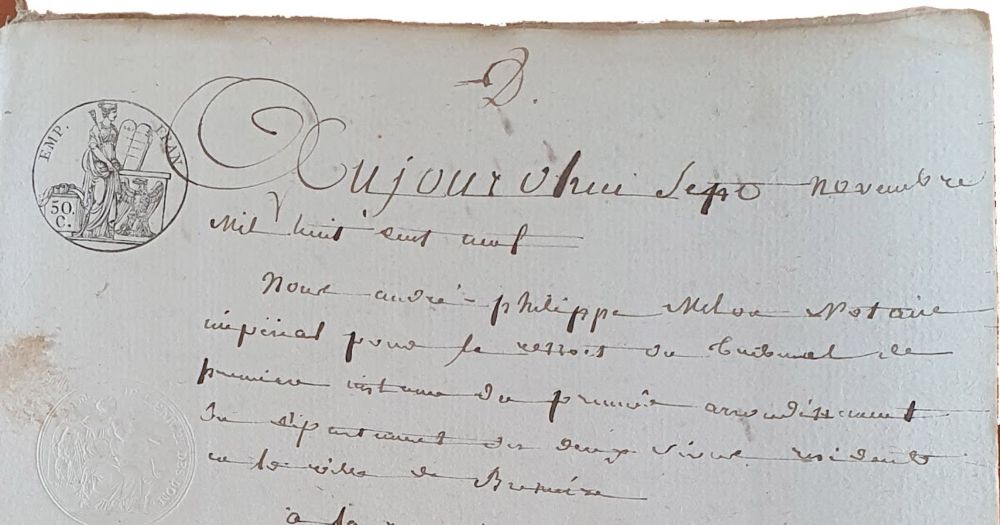 D.
EMP. FRAN
50.
C.
Aujourdhui Sept novembre
Mil huit cent neuf
Nous andré philippe Notaire
impérial pour le ressort du tribunal de
premiere instance du premier arrondissement
du département des deux Sèvres résident
en la ville de
à la